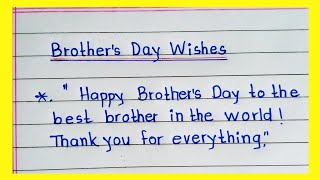 Brother's Day Wishes
*. " Happy Brother's Day to the
best brother in the world!
Thank you for everything."